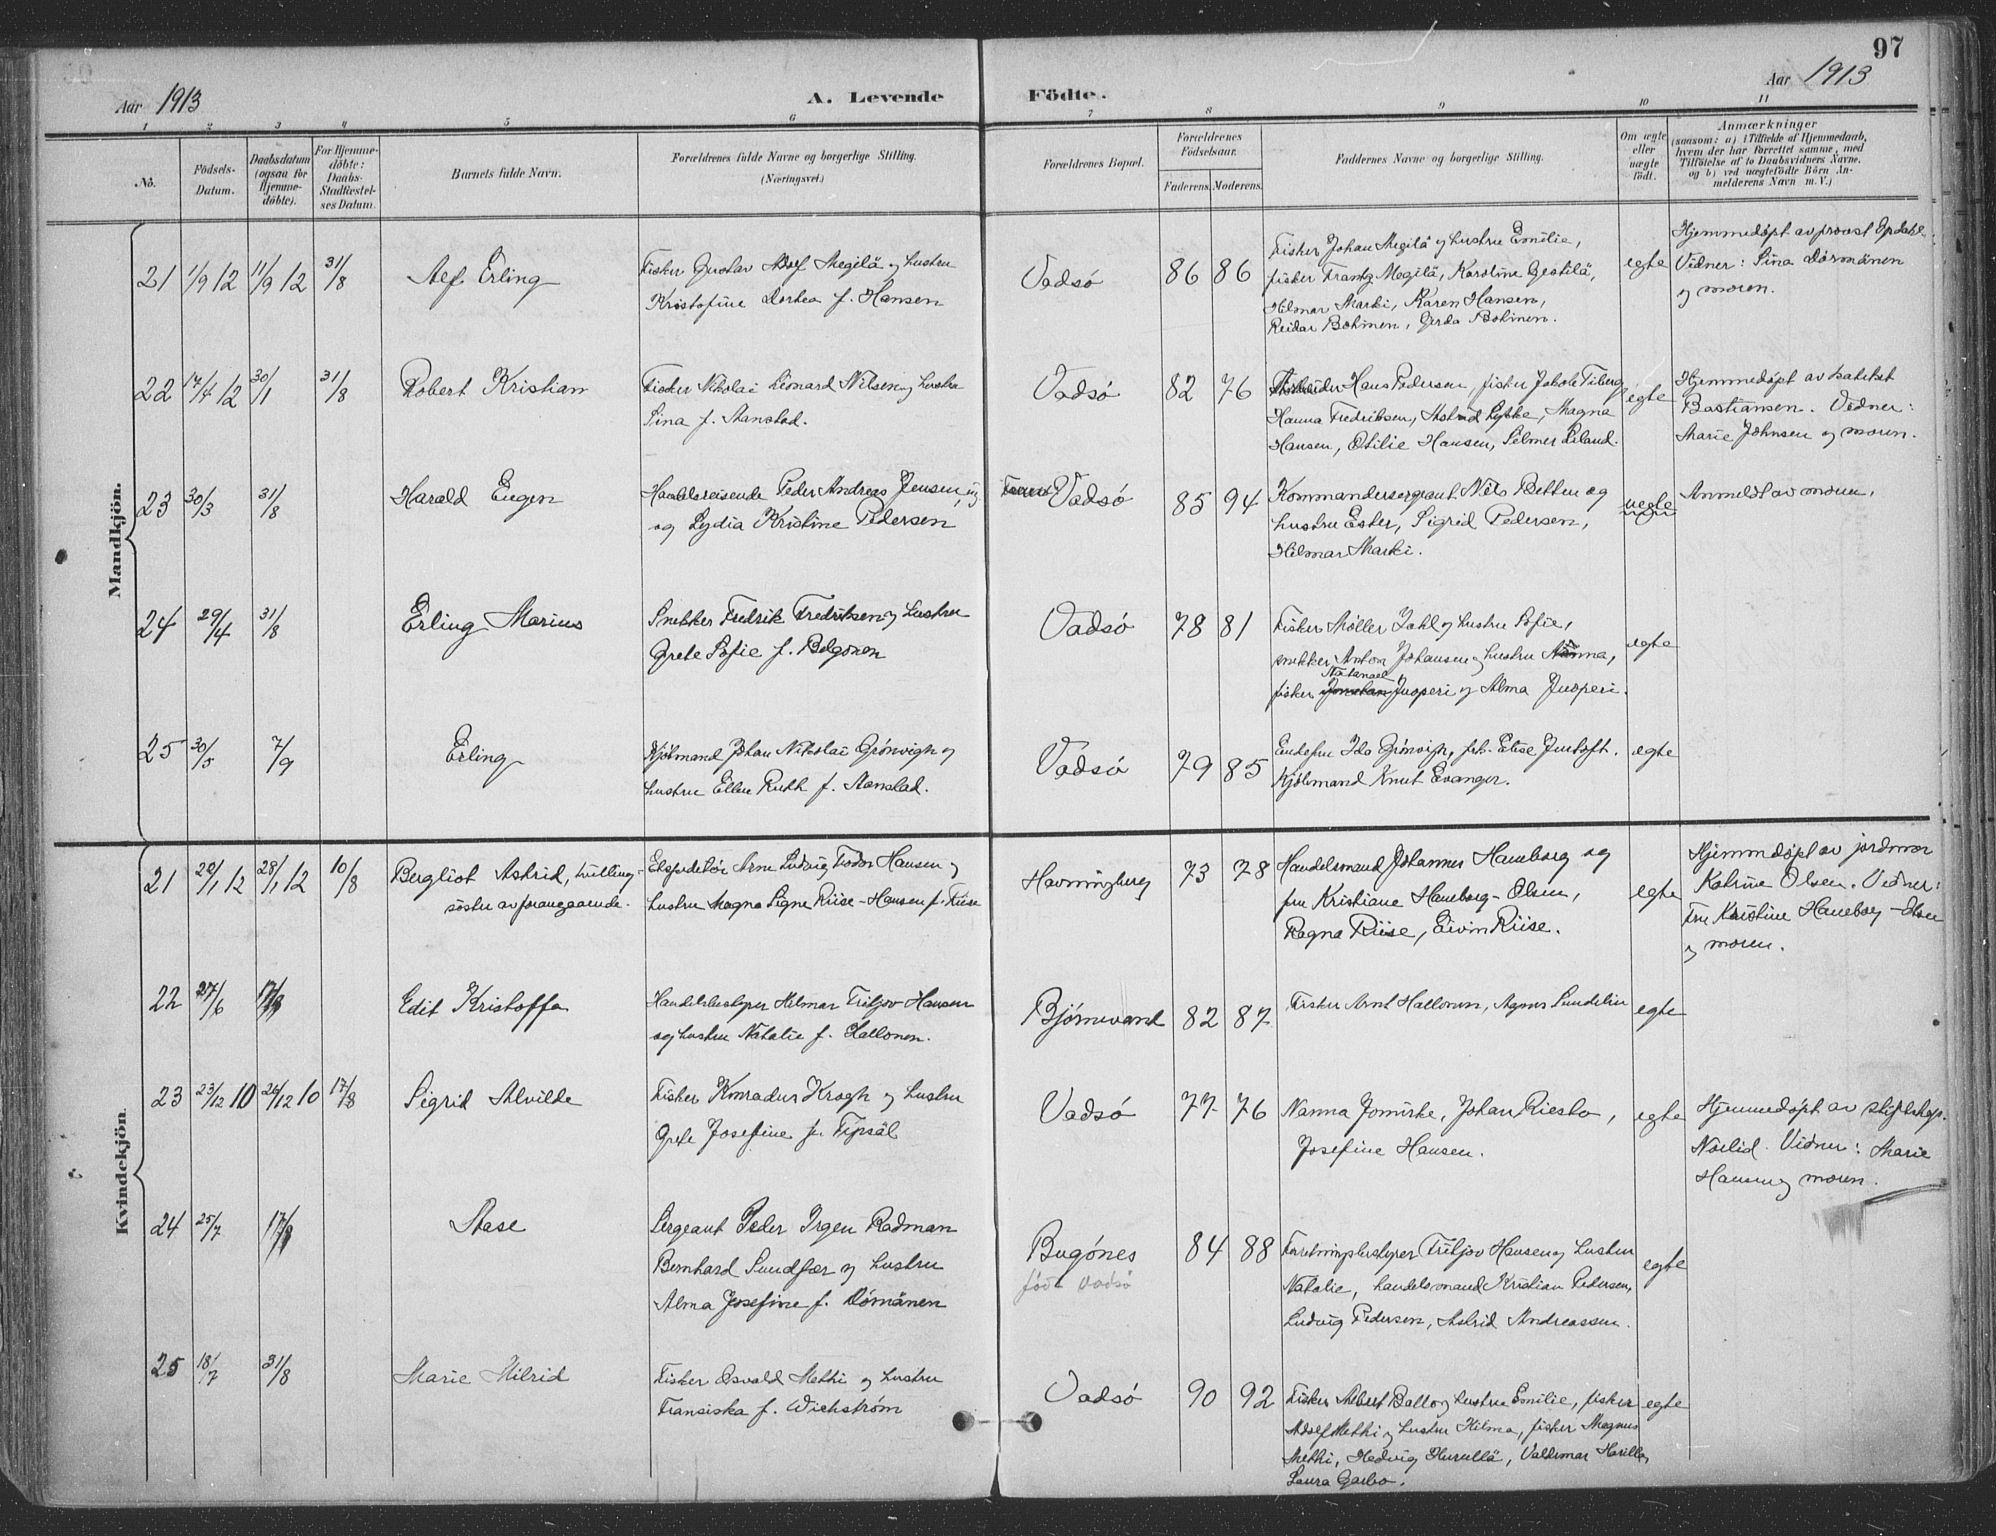 97
Aar 1913
A. Levende Födte.
Aar 1913
1 2 3 4 5 6 7 8 9 10 11
No.
Födsels-Datum.
Daabsdatum (ogsaa for Hjemme-döbte).
For Hjemme-döbte: Daabs-Stadfæstel-ses Datum.
Barnets fulde Navn.
Forældrenes fulde Navne og borgerlige Stilling.
(Næringsvei.)
Forældrenes Bopæl.
Forældrenes Födselsaar.
Faderens. Moderens.
Faddernes Navne og borgerlige Stilling.
Om ægte eller uægte födt.
Anmærkninger
(saasom: a) i Tilfælde af Hjemmedaab,
hvem der har forrettet samme, med
Tilföielse af to Daabsvidners Navne.
og b) ved uægtefödte Börn An-
melderens Navn m. V.)
Mandkjön.
21 1/9 12 11/9 12 31/8
Alf Erling
Fisker Gustav Adolf Megilä og hustru
Kristofine Dorthea f. Hansen
Vadsö
86 86
Fisker Johan Megilä og hustru Emilie,
fisker Frantz Megilä, Karoline
Hilmar Marki, Karen Hansen,
Reidar Bohinen, Gerda Bohinen.
egte
Hjemmedøpt av provst Opdahl.
Vidner: Sina
og moren.
22 17/4 12 30/1 31/8
Robert Kristian
Fisker Nikolai Leonard Nilsen og hustru
Sina f. Aanstad.
Vadsö
82 76
Hans Pedersen, fisker Jakob Tiberg
Hanna Fredriksen, Astrid Lykke, Magna
Hansen, Otilie Hansen, Selmer Leland.
egte
Hjemmedøpt av kateket
Bastiansen. Vidner:
Marie Johnsen og moren.
23 30/3 31/8
Harald Eugen
Handelsreisende Peder Andreas Jensen, ug.
og Lydia Kristine Pedersen
Vadsö
85 94
Kommandersergeant Nils Betten og
hustru Ester, Sigrid Pedersen,
Hilmar Marki.
uegte
Anmeldt av moren.
24 29/4 31/8
Erling Marius
Snekker Fredrik Fredriksen og hustru
Grete Sofie f. Belgonen
Vadsö
78 81
Fisker Møller Dahl og hustru Sofie,
snekker Anton Johansen og hustru Nanna,
Natanael
fisker Jonatan Juoperi og Alma Juoperi.
egte
25 30/5 7/9
Erling
Kjölmand Johan Nikolai Grönvigh og
hustru Ellen Ruth f. Aanstad.
Vadsö
79 85
Enkefru Ida Grönvigh, frk. Elise Justoft.
Kjölsmand Knut Evanger.
egte
Kvindekjön.
21 28/1 12 28/1 12 10/8
Bergliot Astrid, tvilling-
söster av foregaaende.
Ekspeditör Arne Ludvig Fredor Hansen og
hustru Magna Signe Riise-Hansen f. Riise
Havningberg
73 78
Handelsmand Johannes Haneborg og
fru Kristiane Haneborg-Olsen,
Ragna Riise, Eivin Riise.
egte
Hjemmdøpt av jordmor
Katrine Olsen. Vidner:
Fru Kristine Haneborg-Olsen
og moren.
22 27/6 17/8
Edit Kristoffa
Handelsbestyrer Hilmar Fritjov Hansen
og hustru Natalie f. Hallonen.
Bjørnevand
82 87
Fisker Arnt Hallonen, Agnes Sundelin
egte
23 23/12 10 26/12 10 17/8
Sigrid Alvilde
Fisker Konradus Krogh og hustru
Grete Josefine f.
Vadsö
77 76
Nanna Jomiske, Johan Riesto,
Josefine Hansen.
egte
Hjemmedøpt av stiftskap.
Nöelid. Vidner: Marie
Hansen og moren.
24 25/7 17/8
Aase
Sergeant Peder Irgen Radman
Bernhard Sundfær og hustru
Alma Josefine f. Dömänen
Bugönes
födt Vadsö
84 88
Forretningsbestyrer Fritjov Hansen og hustru
Natalie, handelsmand Kristian Pedersen,
Ludvig Pedersen, Astrid Andreassen.
egte
25 18/7 31/8
Marie Milrid
Fisker Osvald Methi og hustru
Fransiska f. Wichström
Vadsö
90 92
Fisker Albert Ballo og hustru Emilie, fisker
Adolf Methi og hustru Hilma, fisker Magnus
Methi, Hedvig Hurullä, Valdemar
Laura Garbo.
egte